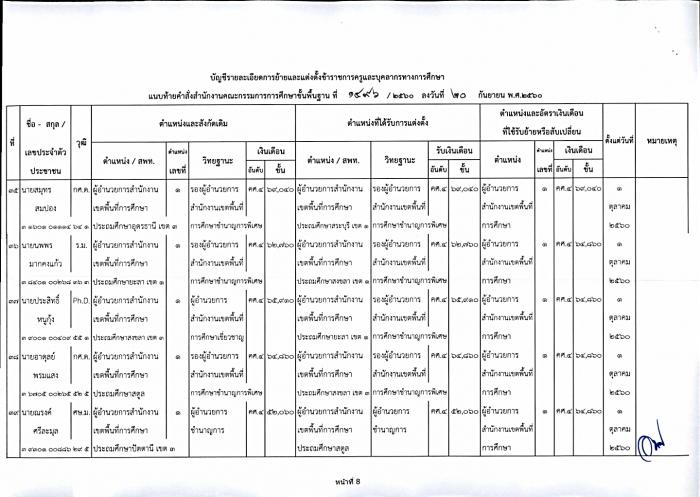 บัญชีรายละเอียดการย้ายและแต่งตั้งข้าราชการครูและบุคลากรทางการศึกษา
แนบท้ายคำสั่งสำนักงานคณะกรรมการการศึกษาขั้นพื้นฐาน ที่ ๑๔๙๖ / ๒๕๖๐ ลงวันที่ ๒๐ กันยายน พ.ศ.๒๕๖๐
ที่ ชื่อ - สกุล / เลขประจำตัวประชาชน วุฒิ ตำแหน่งและสังกัดเดิม ตำแหน่งที่ได้รับการแต่งตั้ง ตำแหน่งและอัตราเงินเดือนที่ใช้รับย้ายหรือสับเปลี่ยน ตั้งแต่วันที่ หมายเหตุ
ตำแหน่ง / สพท. ตำแหน่งเลขที่ วิทยฐานะ เงินเดือน ตำแหน่ง / สพท. วิทยฐานะ รับเงินเดือน ตำแหน่ง ตำแหน่งเลขที่ เงินเดือน
อันดับ ขั้น อันดับ ขั้น อันดับ ขั้น
๓๕ นายสมุทร กศ.ด. ผู้อำนวยการสำนักงาน ๑ รองผู้อำนวยการ คศ.๔ ๖๙,๐๔๐ ผู้อำนวยการสำนักงาน รองผู้อำนวยการ คศ.๔ ๖๙,๐๔๐ ผู้อำนวยการ ๑ คศ.๔ ๖๙,๐๔๐ ๑
สมปอง เขตพื้นที่การศึกษา สำนักงานเขตพื้นที่ เขตพื้นที่การศึกษา สำนักงานเขตพื้นที่ สำนักงานเขตพื้นที่ ตุลาคม
ประถมศึกษาอุดรธานี เขต ๓ การศึกษาชำนาญการพิเศษ ประถมศึกษาสระบุรี เขต ๑ การศึกษาชำนาญการพิเศษ การศึกษา ๒๕๖๐
๓๖ นายนพพร ร.ม. ผู้อำนวยการสำนักงาน ๑ รองผู้อำนวยการ คศ.๔ ๖๒,๗๖๐ ผู้อำนวยการสำนักงาน รองผู้อำนวยการ คศ.๔ ๖๒,๗๖๐ ผู้อำนวยการ ๑ คศ.๔ ๖๔,๘๖๐ ๑
มากคงแก้ว เขตพื้นที่การศึกษา สำนักงานเขตพื้นที่ เขตพื้นที่การศึกษา สำนักงานเขตพื้นที่ สำนักงานเขตพื้นที่ ตุลาคม
ประถมศึกษายะลา เขต ๑ การศึกษาชำนาญการพิเศษ ประถมศึกษาสงขลา เขต ๑ การศึกษาชำนาญการพิเศษ การศึกษา ๒๕๖๐
๓๗ นายประสิทธิ์ Ph.D. ผู้อำนวยการสำนักงาน ๑ ผู้อำนวยการ คศ.๔ ๖๕,๙๑๐ ผู้อำนวยการสำนักงาน รองผู้อำนวยการ คศ.๔ ๖๕,๙๑๐ ผู้อำนวยการ ๑ คศ.๔ ๖๔,๘๖๐ ๑
หนูกุ้ง เขตพื้นที่การศึกษา สำนักงานเขตพื้นที่ เขตพื้นที่การศึกษา สำนักงานเขตพื้นที่ สำนักงานเขตพื้นที่ ตุลาคม
ประถมศึกษาสงขลา เขต ๓ การศึกษาเชี่ยวชาญ ประถมศึกษายะลา เขต ๑ การศึกษาชำนาญการพิเศษ การศึกษา ๒๕๖๐
๓๘ นายอาดุลย์ กศ.ด. ผู้อำนวยการสำนักงาน ๑ รองผู้อำนวยการ คศ.๔ ๖๔,๘๖๐ ผู้อำนวยการสำนักงาน รองผู้อำนวยการ คศ.๔ ๖๔,๘๖๐ ผู้อำนวยการ ๑ คศ.๔ ๖๔,๘๖๐ ๑
พรมแสง เขตพื้นที่การศึกษา สำนักงานเขตพื้นที่ เขตพื้นที่การศึกษา สำนักงานเขตพื้นที่ สำนักงานเขตพื้นที่ ตุลาคม
ประถมศึกษาสตูล การศึกษาชำนาญการพิเศษ ประถมศึกษาสงขลา เขต ๓ การศึกษาชำนาญการพิเศษ การศึกษา ๒๕๖๐
๓๙ นายณรงค์ ศษ.ม. ผู้อำนวยการสำนักงาน ๑ ผู้อำนวยการ คศ.๔ ๕๒,๐๖๐ ผู้อำนวยการสำนักงาน ผู้อำนวยการ คศ.๔ ๕๒,๐๖๐ ผู้อำนวยการ ๑ คศ.๔ ๖๔,๘๖๐ ๑
ศรีละมุล เขตพื้นที่การศึกษา ชำนาญการ เขตพื้นที่การศึกษา ชำนาญการ สำนักงานเขตพื้นที่ ตุลาคม
ประถมศึกษาปัตตานี เขต ๓ ประถมศึกษาสตูล การศึกษา ๒๕๖๐
หน้าที่ 8